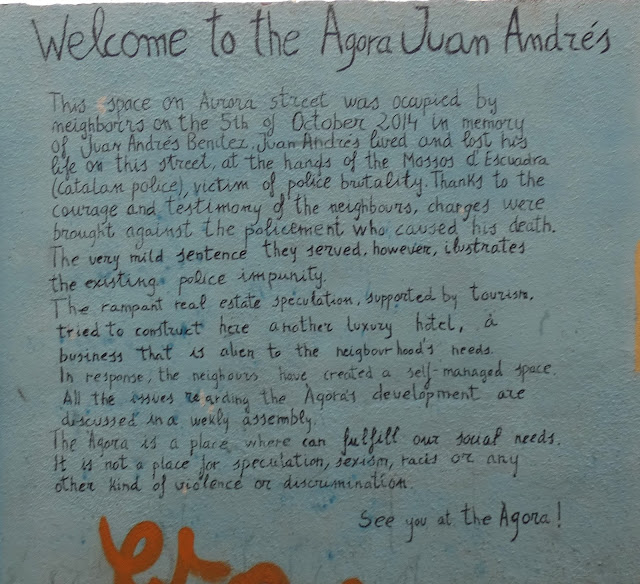 Welcome to the Agora Juan Andrés
This space on Aurora street was ocupied by
neighborrs on the 5th of October 2014 in memory
of Juan Andrés Benítez. Juan Andrés lived and lost his
life on this street, at the hangs of the Mossos d'Escuadra
(Catalan police), victim of police brutality. Thanks to the
courage and testimony of the neighbours, charges were
brought against the policement who caused his death.
The very mild sentence they served, however, ilustrates
the existing police impunity.
The rampant real estate speculation, supported by tourism,
tried to construct here another luxury hotel, a
business that is alien to the neigbourhood's needs.
In response, the neighours have created a self-managed space.
All the issues regarding the Agora's development are
discussed in a wekly assembly.
The Agora is a place where can fulfill our social needs.
It is not a place for speculation, sexism, racis or any
other kind of violence or discrimination.
See you at the Agora!